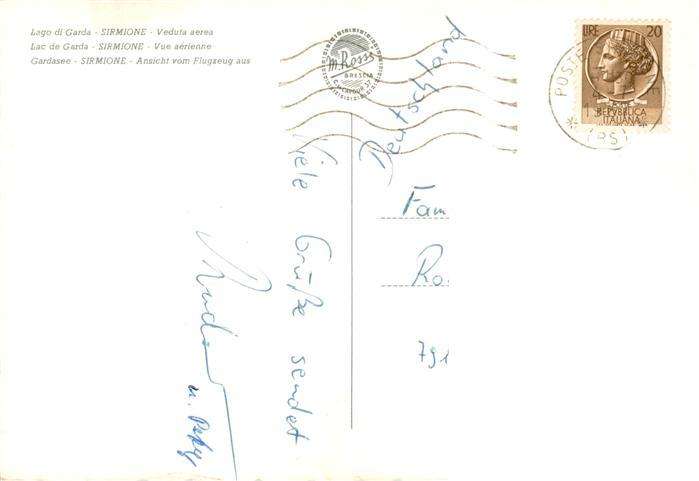 Lago di Garda - SIRMIONE - Veduta aerea
Lac de Garda - SIRMIONE - Vue aérienne
Gardasee - SIRMIONE - Ansicht vom Flugzeug aus
M. Rossi
BRESCIA
LIRE 20
REPVBBLICA
ITALIANA
POSTE
(BS)
Deutschland
Fam
Ro
791
Viele Grüße sendet
u.